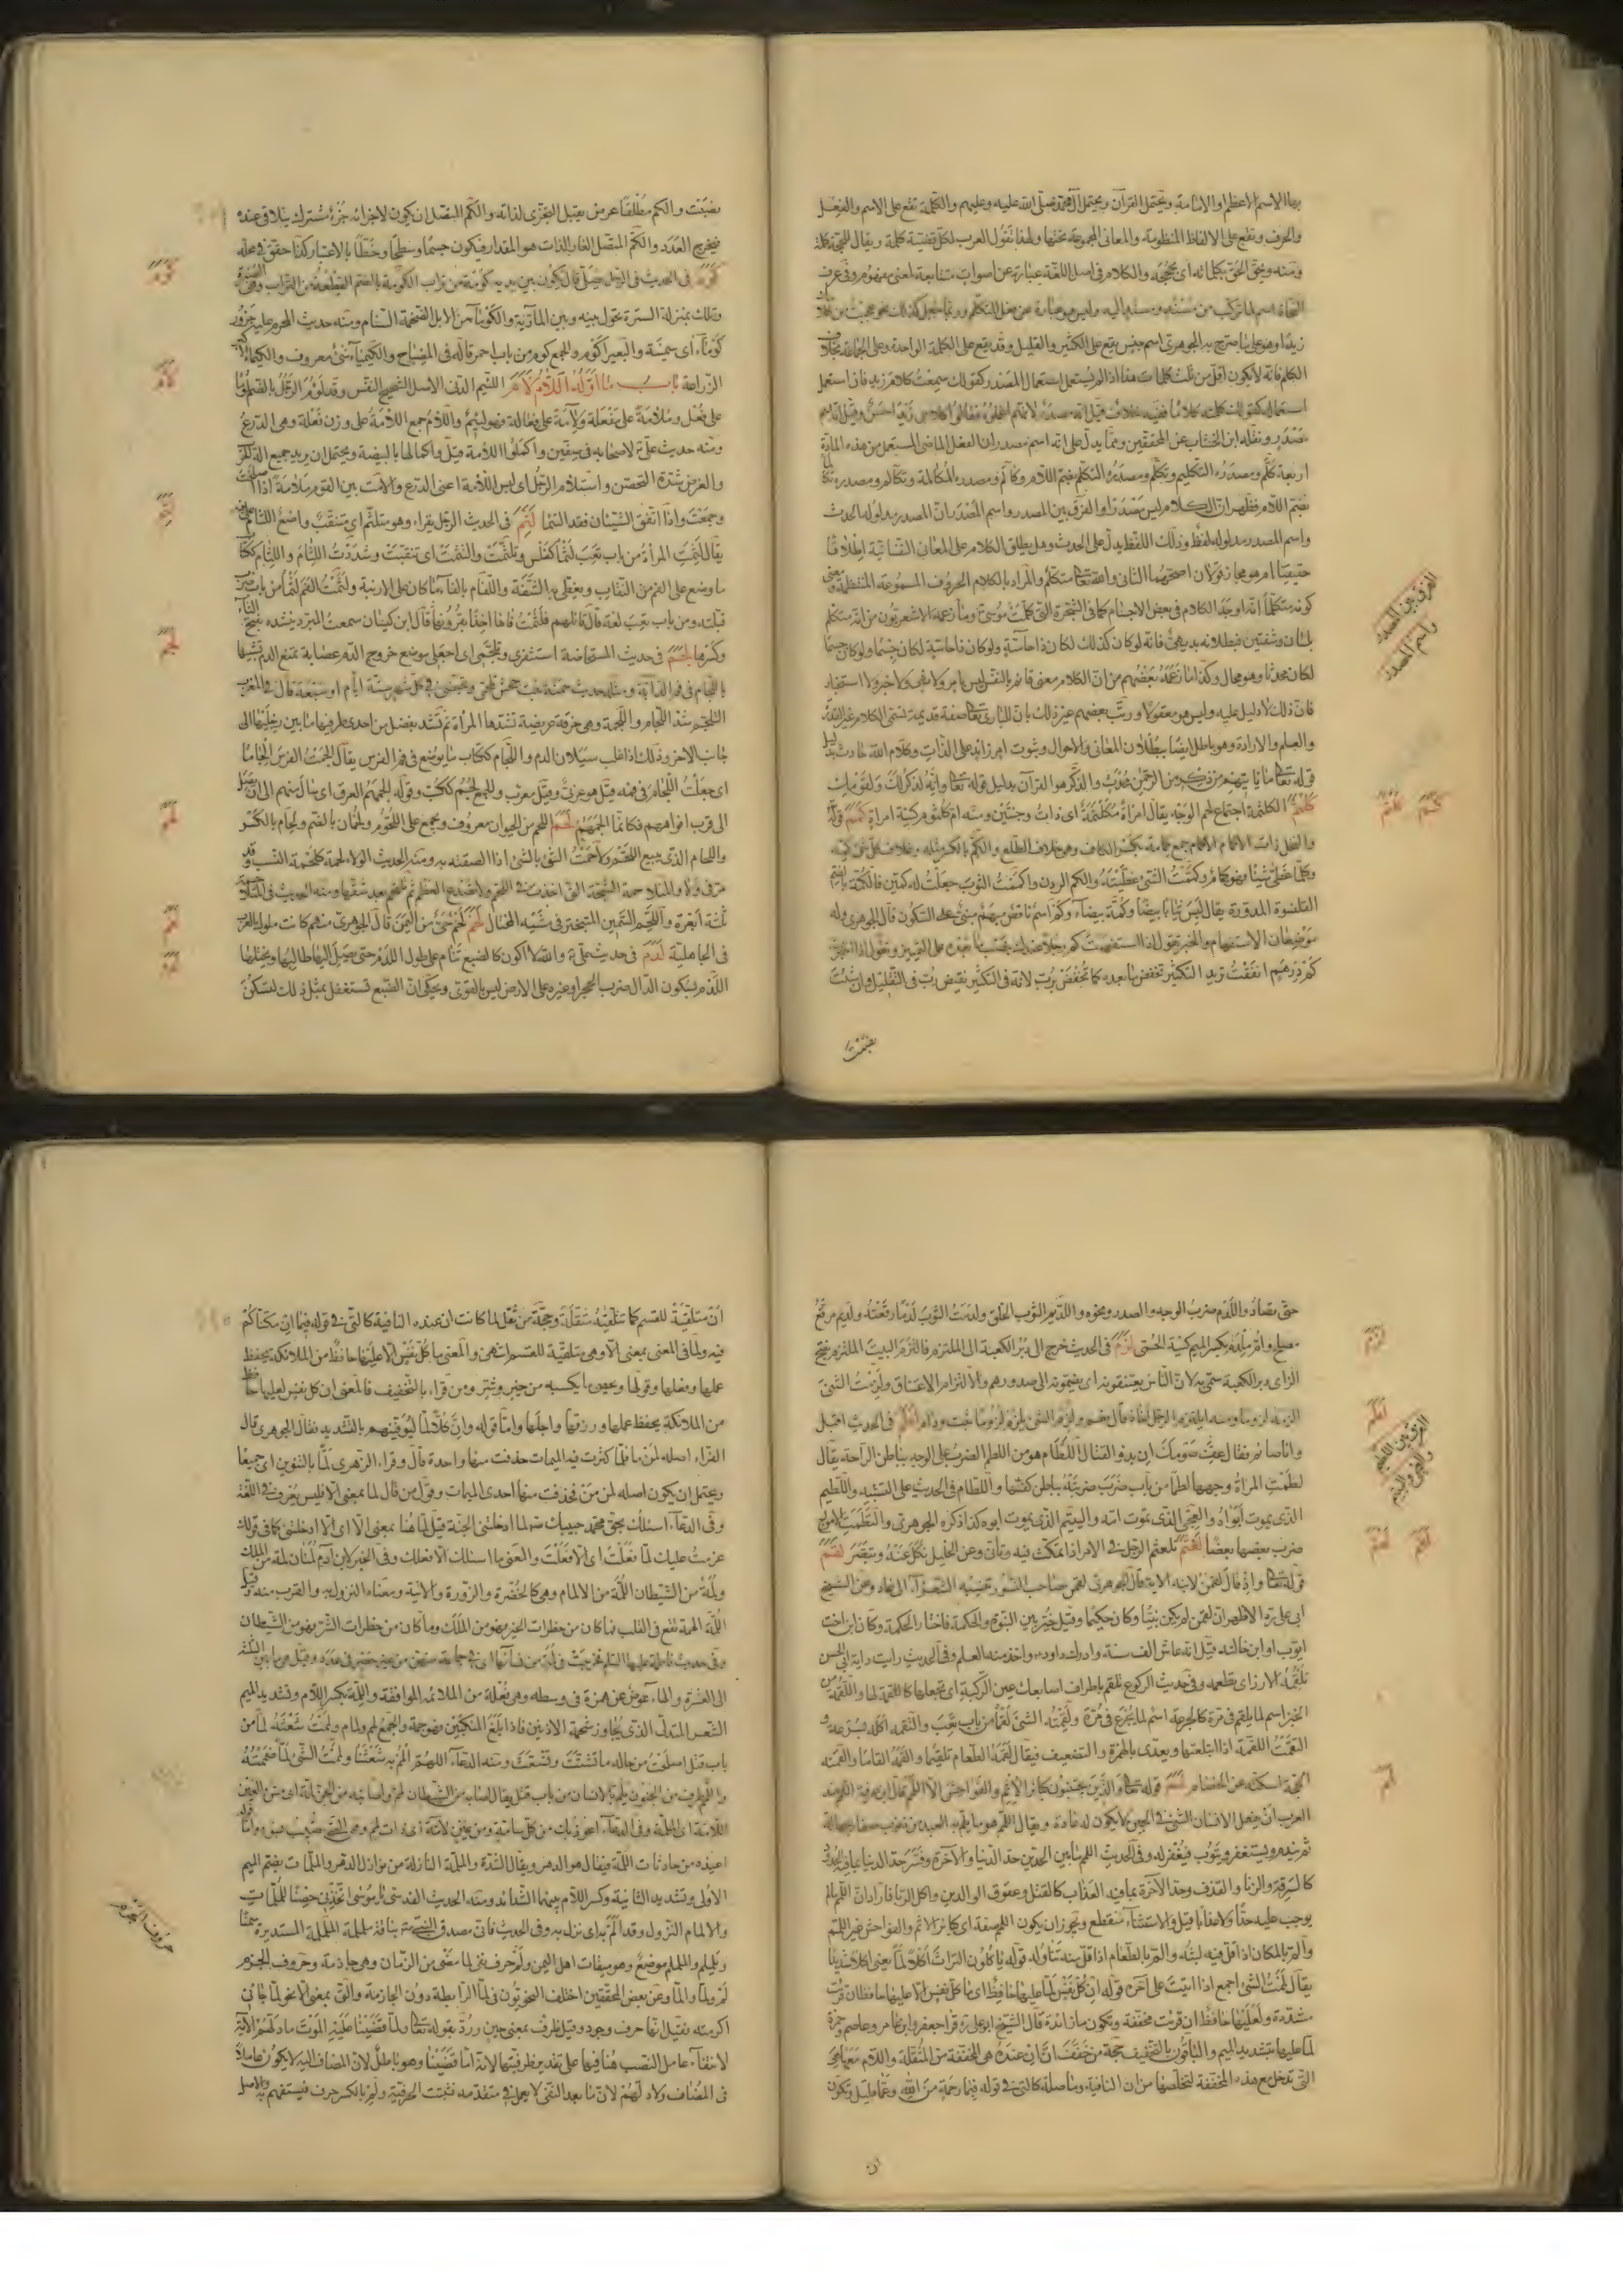 بها الاسم الاعظم او الامامة ويحتمل القرآن ويحتمل آل محمد صلى الله عليه وعليهم والكلمة تقع على الاسم والفعل
والحرف وتقع على الالفاظ المنظومة والمعانى المجموعة تحتها ولهذا تقول العرب لكل قضية كلمة ويقال للحجة كلمة
ومنه ويحق الحق بكلماته اى بحججه والكلام فى اصل اللغة عبارة عن اصوات متتابعة لمعنى مفهوم وفى عرف
النحاة اسم لما تركب من مسند ومسند اليه وليس هو عبارة عن فعل المتكلم وربما جعل كذلك نحو عجبت من كلامك
زيدا وهو على ما صرح به الجوهرى اسم جنس يقع على الكثير والقليل وقد يقع على الكلمة الواحدة وعلى الجماعة بخلاف
الكلم فانه لا يكون اقل من ثلث كلمات هذا اذا لم يستعمل استعمال المصدر كقولك سمعت كلام زيد فان استعمل
استعماله كقولك كلمته كلاما ففيه خلاف قيل انه مصدر لانهم اعملوه فقالوا كلامى زيدا احسن وقيل انه اسم
مصدر ونقله ابن الخشاب عن المحققين ومما يدل على انه اسم مصدر ان الفعل الماضى المستعمل من هذه المادة
اربعة كلم ومصدره التكليم وتكلم ومصدره التكلم بضم اللام وكالم ومصدره المكالمة وتكالم ومصدره تكالما
بضم اللام فظهر ان الكلام ليس مصدرا والفرق بين المصدر واسم المصدر ان المصدر مدلوله الحدث
واسم المصدر مدلوله لفظ وذلك اللفظ يدل على الحدث وهل يطلق الكلام على المعان النفسانية اطلاقا
حقيقيا ام هو مجاز قولان اصحهما الثانى والله تعا متكلم والمراد بالكلام الحروف المسموعة المنتظمة ومعنى
كونه متكلما انه اوجد الكلام فى بعض الاجسام كما فى الشجرة التى كلمت موسى ع وما زعمه الاشعريون من انه متكلم
بلسان وشفتين فبطلانه بديهى فانه لو كان كذلك لكان ذا حاسة ولو كان ذا حاسة لكان جسما ولو كان جسما
لكان محدثا وهو محال وكذا ما زعمه بعضهم من ان الكلام معنى قائم بالنفس ليس بامر ولا نهى ولا خبر ولا استخبار
فان ذلك لا دليل عليه وليس هو معقولا ورتب بعضهم غير ذلك بان للبارى تعا صفة قديمة تسمى الكلام غير القدرة
والعلم والارادة وهو باطل ايضا ببطلان المعانى والاحوال وثبوت امر زائد على الذات وكلام الله حادث بدليل
قوله تعا ما يأتيهم من ذكر من الرحمن محدث والذكر هو القرآن بدليل قوله تعا وانه لذكر لك ولقومك
كلثم الكلثمة اجتماع لحم الوجه يقال امرأة مكلثمة اى ذات وجنتين ومنه ام كلثوم كنية امرأة كمم قوله
والنخل ذات الاكمام الاكمام جمع كمامة بكسر الكاف وهو غلاف الطلع والكم بالكسر مثله وغلاف كل شئ كمه
وكل ما غطى شيئا فهو كمام وكممت الشئ غطيته والكم الردن واكممت الثوب جعلت له كمين فالكمة بالضم
القلنسوة المدورة يقال لبس ثيابا بيضا وكمة بيضاء وكم اسم ناقص مبهم مبنى على السكون قال الجوهرى وله
موضعان الاستفهام والخبر تقول اذا استفهمت كم رجلا عندك نصبت ما بعده على التمييز وتقول اذا اخبرت
كم درهم انفقت تريد التكثير تخفض ما بعده كما تخفض برب لانه فى التكثير نقيض رب فى التقليل وان شئت
نصبت
الفرق بين المصدر
واسم المصدر
كلثم كمم
نصبت والكم مطلقا عرض يقبل التجزى لذاته والكم المتصل ان يكون لاجزائه جزء مشترك يتلاقى عنده
فيخرج العدد والكم المتصل القار الذات هو المقدار فيكون جسما وسطحا وخطا بالاعتبار كذا حقق فى محله
كوم فى الحديث فى الرجل يصلى قال يكون بين يديه كومة من تراب الكومة بالضم القطعة من التراب وهى الصبرة
وذلك بمنزلة السترة تحول بينه وبين المارة والكوماء من الابل الضخمة السنام ومنه حديث المحرم عليه جزور
كوماء اى سمينة والبعير اكوم والجمع كوم من باب احمر قاله فى المصباح والكيمياء شئ معروف والكيماء
الزراعة باب ما اوله اللام لأم اللئيم الدنى الاصل الشحيح النفس وقد لؤم الرجل بالضم لؤما
على فعل وملأمة على مفعلة ولآمة على فعالة فهو لئيم واللأم جمع اللأمة على وزن فعلة وهى الدرع
ومنه حديث على ع لاصحابه فى صفين واكملوا اللأمة قيل واكمالها بالبيضة ويحتمل ان يريد جميع آلة الحرب
والغرض شدة التحصن واستلأم الرجل اى لبس اللأمة اعنى الدرع ولأمت بين القوم ملأمة اذا اصلحت
وجمعت واذا اتفق الشيئان فقد التئما لثم فى الحديث الرجل يقرأ وهو متلثم اى متنقب واضع اللثام على فيه
يقال لثمت المرأة من باب تعب لثما كفلس وتلثمت والتثمت اى تنقبت وشددت اللثام واللثام ككتاب
ما وضع على الفم من النقاب ويغطى به الشفة واللفام بالفاء ما كان على الارنبة ولثمت الفم لثما من باب ضرب
قبلته ومن باب تعب لغة قال قائلهم فلثمت فاها اخذا بقرونها قال ابن كيسان سمعت المبرد ينشده بفتح الثاء
وكسرها لجم فى حديث المستحاضة استثفرى وتلجمى اى اجعلى موضع خروج الدم عصابة تمنع الدم تشبيها
باللجام فى فم الدابة ومثله حديث حمنة بنت جحش تلجمى وتحيضى فى كل شهر ستة ايام او سبعة قال فى المغرب
التلجم شد اللجام واللجمة وهى خرقة عريضة تشدها المرأة ثم تشد بفضل من احدى طرفيها ما بين رجليها الى
جانب الآخر وذلك اذا غلب سيلان الدم واللجام ككتاب ما يوضع فى فم الفرس يقال الجمت الفرس الجاما
اى جعلت اللجام فى فمه قيل هو عربى وقيل معرب والجمع لجم ككتب وقوله يلجمهم العرق اى سال منهم الى ان يصل
الى قرب افواههم فكانما الجمهم لحم اللحم من الحيوان معروف ويجمع على اللحوم ولحمان بالضم ولحام بالكسر
واللحام الذى يبيع اللحم ولاحمت الشئ بالشئ اذا الصقته به ومنه الحديث الولاء لحمة كلحمة النسب وقد
فى الجاهلية لدم فى حديث على ع والله لا اكون كالضبع تنام على طول اللدم حتى يصل اليها طالبها ويختلها
اللدم بسكون الدال ضرب الحجر او غيره على الارض ليس بالقوى ويحكى ان الضبع تستغفل بمثل ذلك لتسكن
كوم
لأم
لثم
لجم
لحم
لخم
لدم
حتى تصاد واللدم ضرب الوجه والصدر ونحوه واللديم الثوب الخلق ولدمت الثوب لدما رقعته ولديم مرقع
مصلح وام ملدم بكسر الميم كنية الحمى لزم فى الحديث خرج الى دبر الكعبة الى الملتزم فالتزم البيت الملتزم بفتح
الزاى دبر الكعبة سمى به لان الناس يعتنقونه اى يضمونه الى صدورهم والالتزام الاعتناق ولزمت الشئ
لطمت المرأة وجهها لطما من باب ضرب ضربته بباطن كفها واللطام فى الحديث على التشبيه واللطيم
الذى يموت ابواه والعجى الذى تموت امه واليتيم الذى يموت ابوه كذا ذكره الجوهرى والتطمت الامواج
ضرب بعضها بعضا لعثم تلعثم الرجل فى الامر اذا تمكث فيه وتأنى وعن الخليل نكل عنه وتبصر لقم
قوله تعا واذ قال لقمن لابنه الاية قال الجوهرى لقمن صاحب النسور تنسبه الشعراء الى عاد وعن الشيخ
ابى على ره الاظهر ان لقمن لم يكن نبيا وكان حكيما وقيل خير بين النبوة والحكمة فاختار الحكمة وكان ابن اخت
ايوب او ابن خالته قيل انه عاش الف سنة وادرك داود ع واخذ منه العلم وفى الحديث رايت داية ابى الحسن
تلقمه الارز اى تطعمه وفى حديث الركوع تلقم باطراف اصابعك عين الركبة اى تجعلها كاللقمة لها واللقمة من
الخبز اسم لما يلقم فى مرة كالجرعة اسم لما يجرع فى مرة ولقمت الشئ لقما من باب تعب والتقمه اكله بسرعة و
التقمت اللقمة اذا ابتلعتها ويعدى بالهمزة والتضعيف فيقال لقمه الطعام تلقيما والقمه القاما والقمته
الحجر اسكته عن الخصام لمم قوله تعا والذين يجتنبون كبائر الاثم والفواحش الا اللمم قال ابن عرفة اللمم عند
العرب ان يفعل الانسان الشئ فى الحين لا يكون له عادة ويقال اللمم هو ما يلم به العبد من ذنوب صغار بجهالة
ثم يندم ويستغفر ويتوب فيغفر له وفى الحديث اللمم ما بين الحدين حد الدنيا والآخرة وفسر حد الدنيا بما فيه الحدود
كالسرقة والزنا والقذف وحد الآخرة بما فيه العذاب كالقتل وعقوق الوالدين واكل الربا فاراد ان اللمم ما لم
يوجب عليه حدا ولا عذابا قيل والاستثناء منقطع ويجوز ان يكون اللمم صفة اى كبائر الاثم والفواحش غير اللمم
والم بالمكان اذا قل فيه لبثه والم بالطعام اذا قل منه تناوله قوله يأكلون التراث اكلا لما يعنى اكلا شديدا
يقال لممت الشئ اجمع اذا اتيت على آخره قوله ان كل نفس لما عليها حافظ اى ما كل نفس الا عليها حافظ ان قرئت
مشددة ولعليها حافظ ان قرئت مخففة وتكون ما زائدة قال الشيخ ابو على ره قرأ جعفر وابن عامر وعاصم وحمزة
لما عليها بتشديد الميم والباقون بالتخفيف حجة من خفف ان ان عنده هى المخففة من المثقلة واللام معها هى
التى تدخل مع هذه المخففة لتخلصها من ان النافية وما صلة كالتى فى قوله فبما رحمة من الله وعما قليل وتكون
ان
لزم
لطم
لعثم لقم
لمم
ان متلقية للقسم كما تتلقيه مثقلة وحجة من ثقل لما كانت ان عنده النافية كالتى فى قوله فيما ان مكناكم
فيه ولما فى المعنى بمعنى الا وهى متلقية للقسم انتهى والمعنى ما كل نفس الا عليها حافظ من الملائكة يحفظ
عملها وفعلها وقولها ويحصى ما يكسبه من خير وشر ومن قرأ بالتخفيف فالمعنى ان كل نفس لعليها حافظ
من الملائكة يحفظ عملها ورزقها واجلها واما قوله وان كلا لما ليوفينهم بالتشديد فقال الجوهرى قال
الفراء اصله لمن ما فلما كثرت فيه الميمات حذفت منها واحدة قال وقرأ الزهرى لما بالتنوين اى جميعا
ويحتمل ان يكون اصله لمن من فحذفت منها احدى الميمات وقول من قال لما بمعنى الا فليس يعرف فى اللغة
وفى الدعاء اسئلك بحق محمد حبيبك ص لما ادخلتنى الجنة قيل لما هنا بمعنى الا اى الا ادخلتنى كما فى قولك
عزمت عليك لما فعلت اى الا فعلت والمعنى ما اسئلك الا فعلك وفى الخبر لابن آدم لمتان لمة من الملك
ولمة من الشيطان اللمة من الالمام وهى كالخطرة والزورة والاتية ومعناه النزول به والقرب منه وقيل
اللمة الهمة تقع فى القلب فما كان من خطرات الخير فهو من الملك وما كان من خطرات الشر فهو من الشيطان
الى العشرة والهاء عوض عن همزة فى وسطه وهى فعلة من الملائمة الموافقة واللمة بكسر اللام وتشديد الميم
الشعر المتدلى الذى يجاوز شحمة الاذنين فاذا بلغ المنكبين فهو جمة والجمع لمم ولمام ولممت شعثه لما من
باب قتل اصلحت من حاله ما تشتت وتشعث ومنه الدعاء اللهم المم به شعثنا ولممت الشئ لما ضممته
واللمم طرف من الجنون يلم بالانسان من باب قتل يقال اصابه من الشيطان لمم واصابته من الجن لمة اى مس
اعيذه من حادثات اللمة فيقال هو الدهر ويقال الشدة والملمة النازلة من نوازل الدهر والملمات بضم الميم
الاولى وتشديد الثانية وكسر اللام بينهما الشدائد ومنه الحديث القدسى يا موسى اتخذنى حصنا للملمات
والالمام النزول وقد الم به اى نزل به وفى الحديث فاتى مصدق النبى ص بناقة ململمة الململمة المستديرة سمنا
ويلملم والململم موضع وهو ميقات اهل اليمن ولم حرف نفى لما مضى من الزمان وهى جازمة وحروف الجزم
لم ولما والما وعن بعض المحققين اختلف النحويون فى لما الرابطة دون الجازمة والتى بمعنى الا نحو لما جائنى
اكرمته فقيل انها حرف وجود وقيل ظرف بمعنى حين ورد بقوله تعا ولما قضينا عليه الموت ما دلهم الآية
لانتفاء عامل النصب هنا فيها على تقدير ظرفيتها لانه اما قضينا وهو باطل لان المضاف اليه لا يكون عاملا
فى المضاف ولا دلهم لان ما بعد النفى لا يعمل فى متقدمه فثبت الحرفية ولم بالكسر حرف فيستفهم به والاصل
حروف الجزم